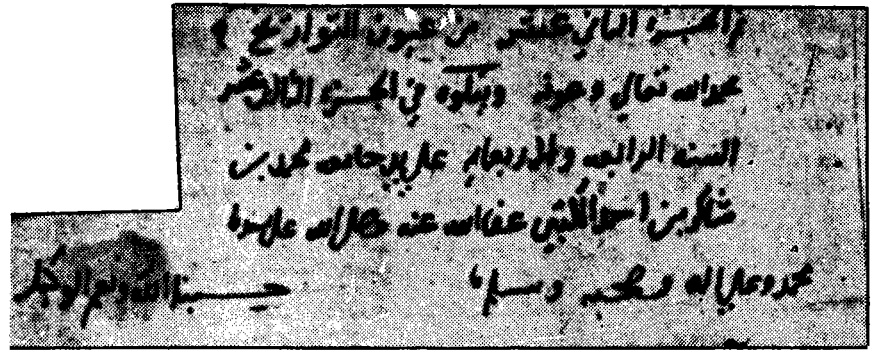 تم الجزء الثاني عشر من عيون التواريخ
بحمد الله تعالى وعونه ويتلوه في الجزء الثالث عشر
السنة الرابعه والاربعمايه على يد جامعه محمد بن
شاكر بن احمد الكتبي عفا الله عنه وصلى الله على سيدنا
محمد وعلى اله وصحبه وسلم
حسبنا الله ونعم الوكيل